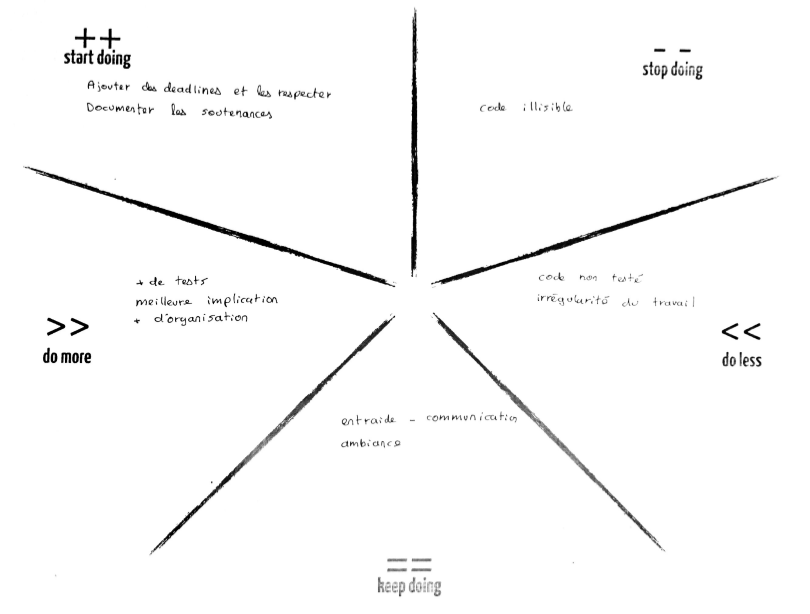 ++
start doing
Ajouter des deadlines et les respecter
Documenter les soutenances
-- 
stop doing
code illisible
>>
do more
+ de tests
meilleure implication
+ d'organisation
<<
do less
code non testé
irrégularité du travail
entraide - communication
ambiance
==
keep doing